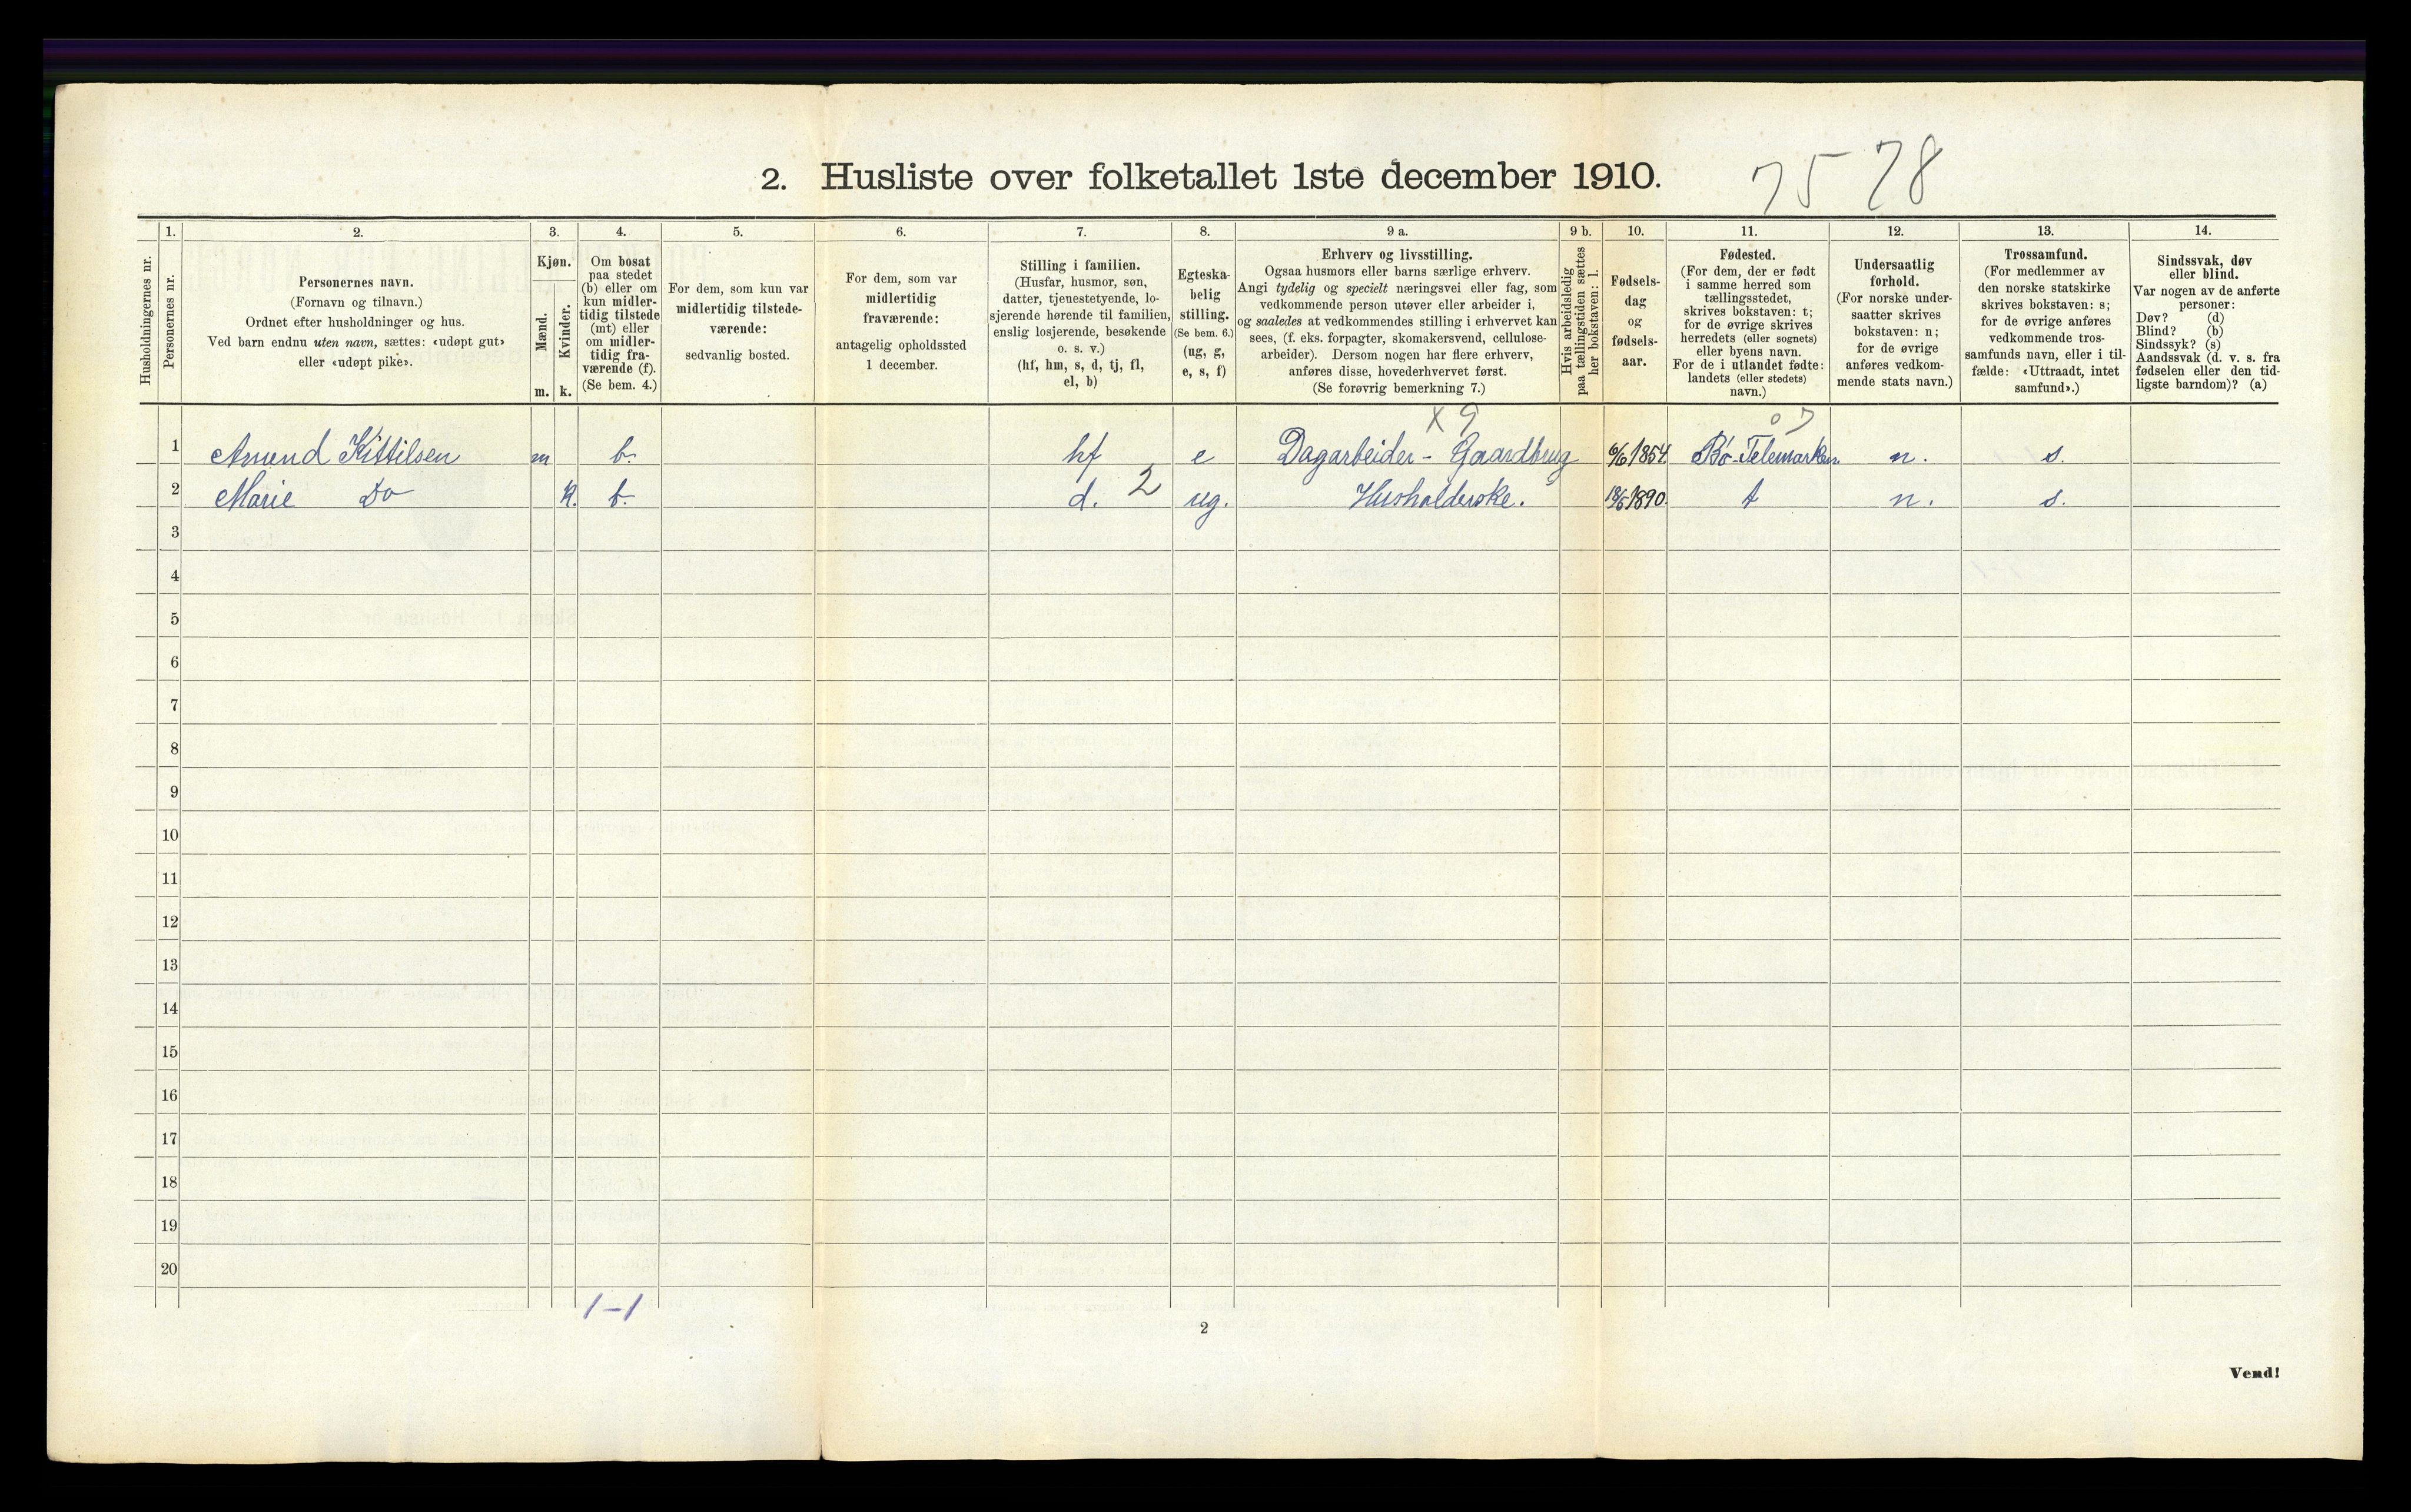 2. Husliste over folketallet 1ste december 1910.
75 78
Husholdningernes nr.
1.
Personernes nr.
2.
Personernes navn.
(Fornavn og tilnavn.)
Ordnet efter husholdninger og hus.
Ved barn endnu uten navn, sættes: «udøpt gut»
eller «udøpt pike».
3.
Kjøn.
Mænd.
Kvinder.
m. k.
4.
Om bosat
paa stedet
(b) eller om
kun midler-
tidig tilstede
(mt) eller
om midler-
tidig fra-
værende (f).
(Se bem. 4.)
5.
For dem, som kun var
midlertidig tilstede-
værende:
sedvanlig bosted.
6.
For dem, som var
midlertidig
fraværende:
antagelig opholdssted
1 december.
7.
Stilling i familien.
(Husfar, husmor, søn,
datter, tjenestetyende, lo-
sjerende hørende til familien,
enslig losjerende, besøkende
o. s. v.)
(hf, hm, s, d, tj, fl,
el, b)
8.
Egteska-
belig
stilling.
(Se bem. 6.)
(ug, g,
e, s, f)
9 a.
Erhverv og livsstilling.
Ogsaa husmors eller barns særlige erhverv.
Angi tydelig og specielt næringsvei eller fag, som
vedkommende person utøver eller arbeider i,
og saaledes at vedkommendes stilling i erhvervet kan
sees, (f. eks. forpagter, skomakersvend, cellulose-
arbeider). Dersom nogen har flere erhverv,
anføres disse, hovederhvervet først.
(Se forøvrig bemerkning 7.)
9 b.
Hvis arbeidsledig
paa tællingstiden sættes
her bokstaven: l.
10.
Fødsels-
dag
og
fødsels-
aar.
11.
Fødested.
(For dem, der er født
i samme herred som
tællingsstedet,
skrives bokstaven: t;
for de øvrige skrives
herredets (eller sognets)
eller byens navn.
For de i utlandet fødte:
landets (eller stedets)
navn.)
12.
Undersaatlig
forhold.
(For norske under-
saatter skrives
bokstaven: n;
for de øvrige
anføres vedkom-
mende stats navn.)
13.
Trossamfund.
(For medlemmer av
den norske statskirke
skrives bokstaven: s;
for de øvrige anføres
vedkommende tros-
samfunds navn, eller i til-
fælde: «Uttraadt, intet
samfund».)
14.
Sindssvak, døv
eller blind.
Var nogen av de anførte
personer:
Døv? (d)
Blind? (b)
Sindssyk? (s)
Aandssvak (d. v. s. fra
fødselen eller den tid-
ligste barndom)? (a)
x 9
1 Amund Kittilsen m b. hf e Dagarbeider - Gaardbrug 6/6 1854. Bø-Telemarken. n. s.
2 Marie Do k. b. d. 2 ug. Husholderske. 18/6 1890. t n. s.
3
4
5
6
7
8
9
10
11
12
13
14
15
16
17
18
19
20
1-1
2
Vend!